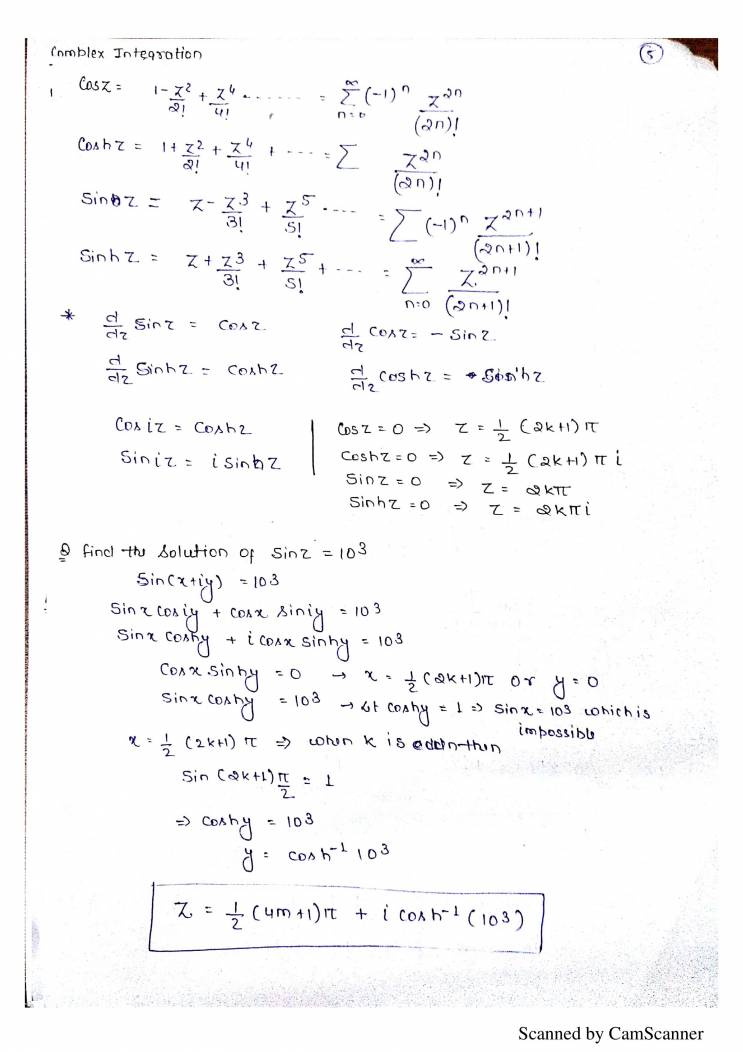 Complex Integration
5
1 Cosz = 1 - z²/2! + z⁴/4! ...... = ∑_{n=0}^{∞} (-1)ⁿ z²ⁿ/(2n)!
Coshz = 1 + z²/2! + z⁴/4! + .... = ∑ z²ⁿ/(2n)!
Sinz = z - z³/3! + z⁵/5! .... = ∑ (-1)ⁿ z²ⁿ⁺¹/(2n+1)!
Sinhz = z + z³/3! + z⁵/5! + .... = ∑_{n=0}^{∞} z²ⁿ⁺¹/(2n+1)!
* d/dz Sinz = Cosz d/dz Cosz = - Sinz
d/dz Sinhz = Coshz d/dz Coshz = Sinhz
Cosiz = Coshz
Siniz = i Sinhz
Cosz = 0 ⇒ z = 1/2 (2k+1)π
Coshz = 0 ⇒ z = 1/2 (2k+1)π i
Sinz = 0 ⇒ z = 2kπ
Sinhz = 0 ⇒ z = 2kπi
Q find the solution of Sinz = 10³
Sin(x+iy) = 10³
Sinx cosiy + cosx siniy = 10³
Sinx coshy + i cosx sinhy = 10³
Cosx sinhy = 0 → x = 1/2 (2k+1)π or y = 0
Sinx coshy = 10³ → coshy = 1 ⇒ sinx = 10³ which is
impossible
x = 1/2 (2k+1) π ⇒ when k is then
Sin (2k+1)π/2 = 1
⇒ coshy = 10³
y = cosh⁻¹ 10³
z = 1/2 (4m+1)π + i cosh⁻¹ (10³)
Scanned by CamScanner